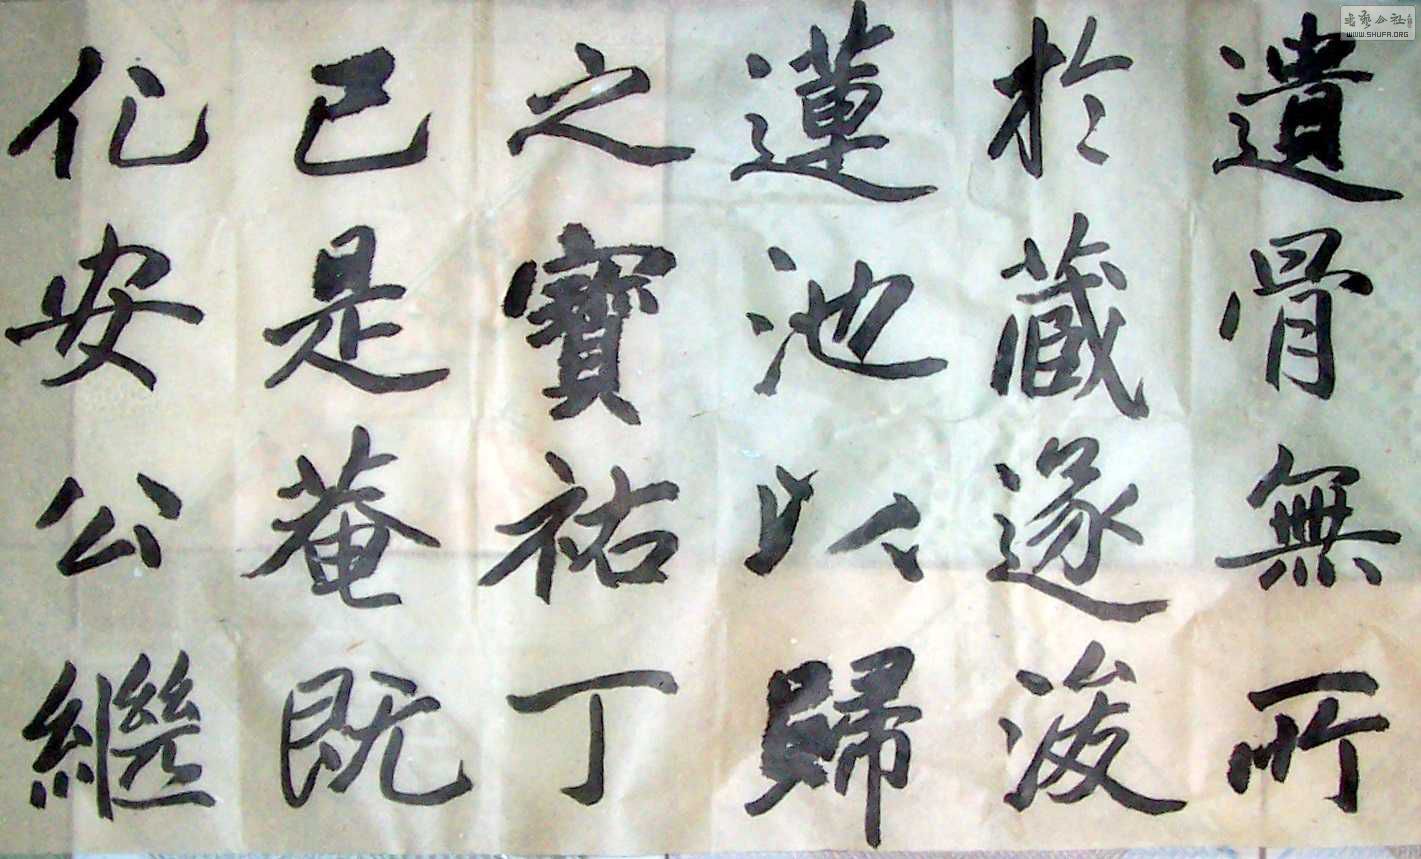 遺骨無所
於藏遂浚
蓮池以歸
之寶祐丁
巳是菴既
化安公繼
WWW.SHUFA.ORG